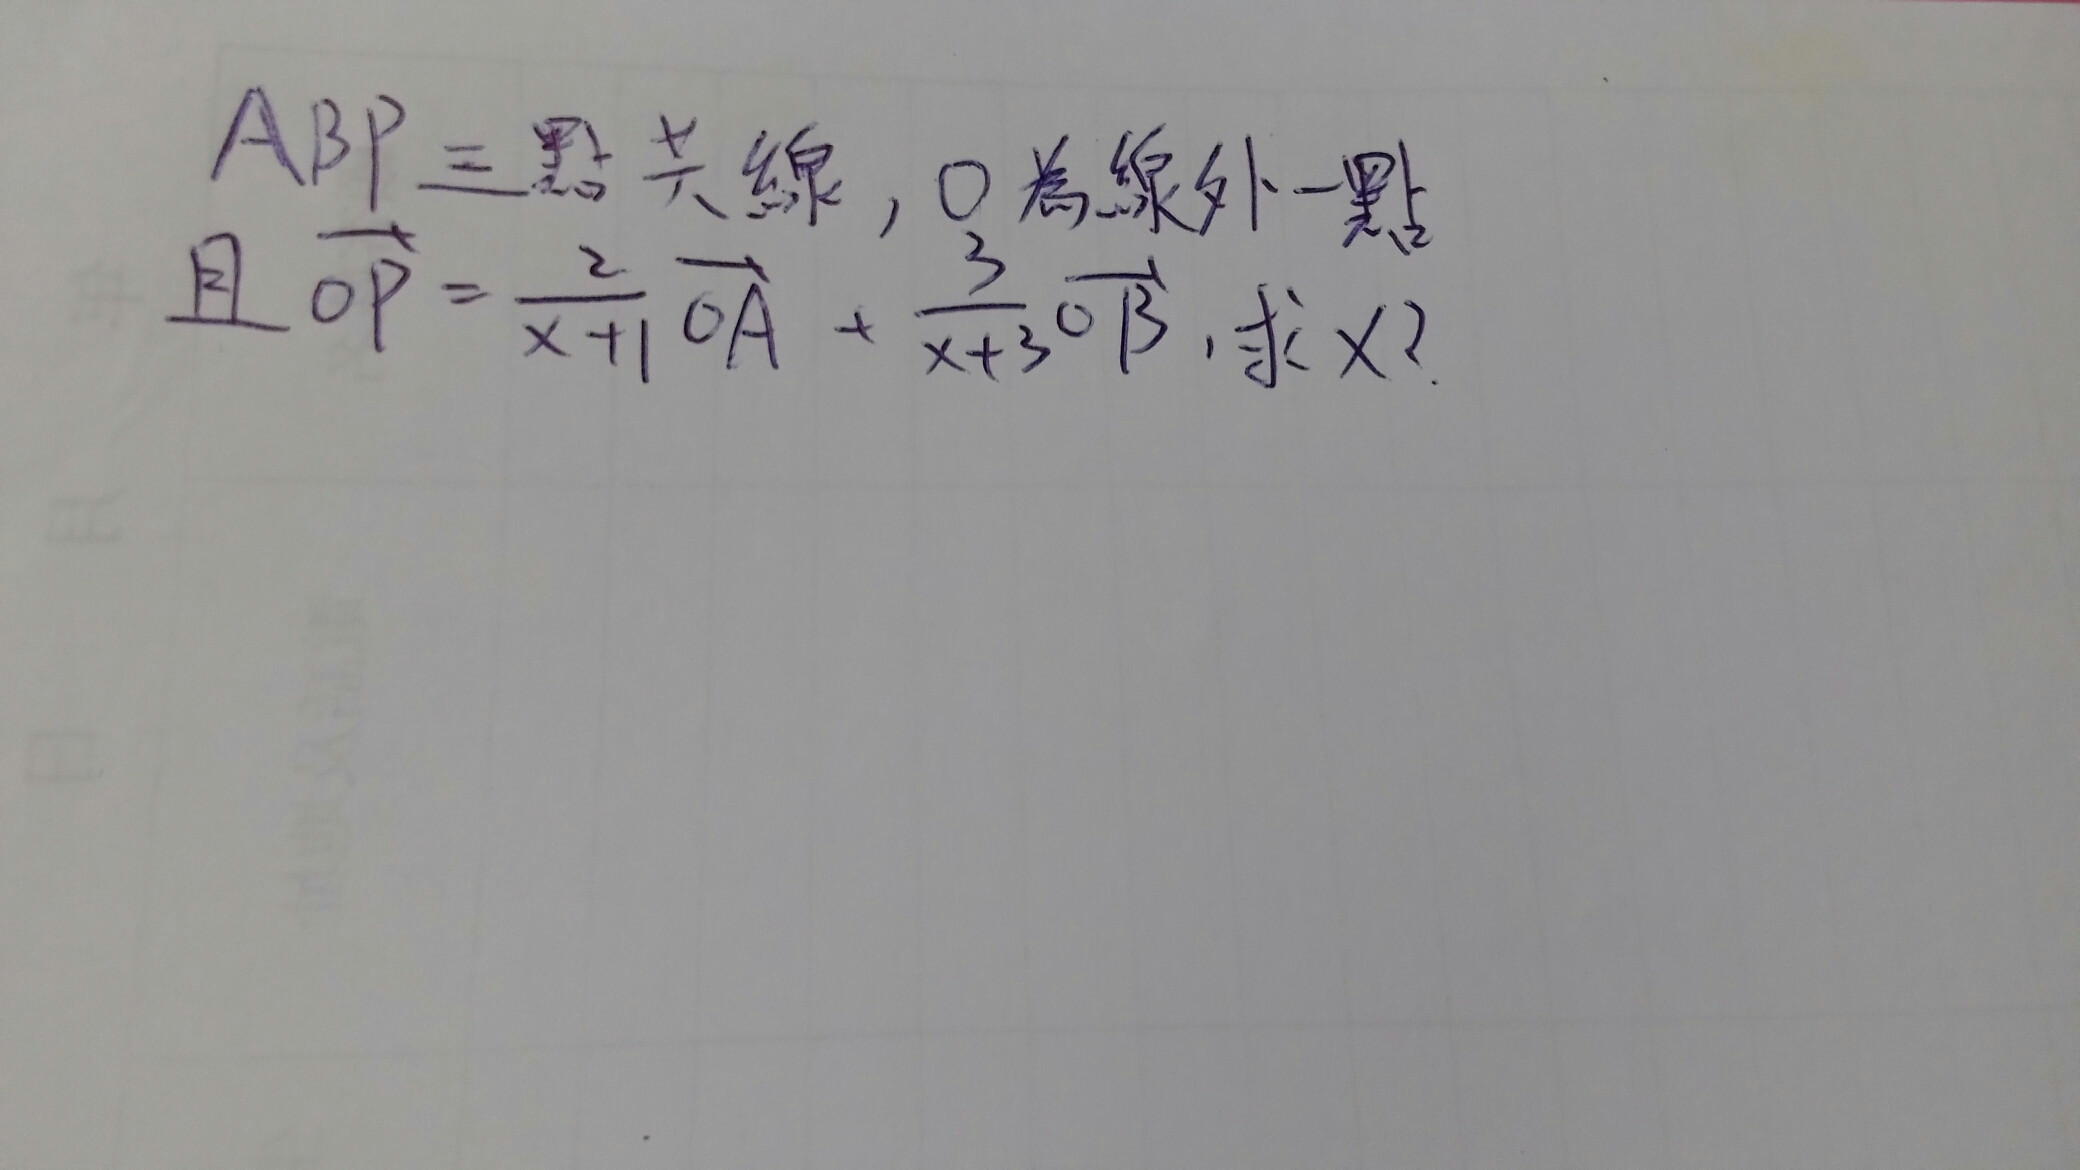 ABP三點共線,O為線外一點
且 $\overrightarrow{OP} = \frac{2}{x+1}\overrightarrow{OA} + \frac{3}{x+3}\overrightarrow{OB}$,求x?